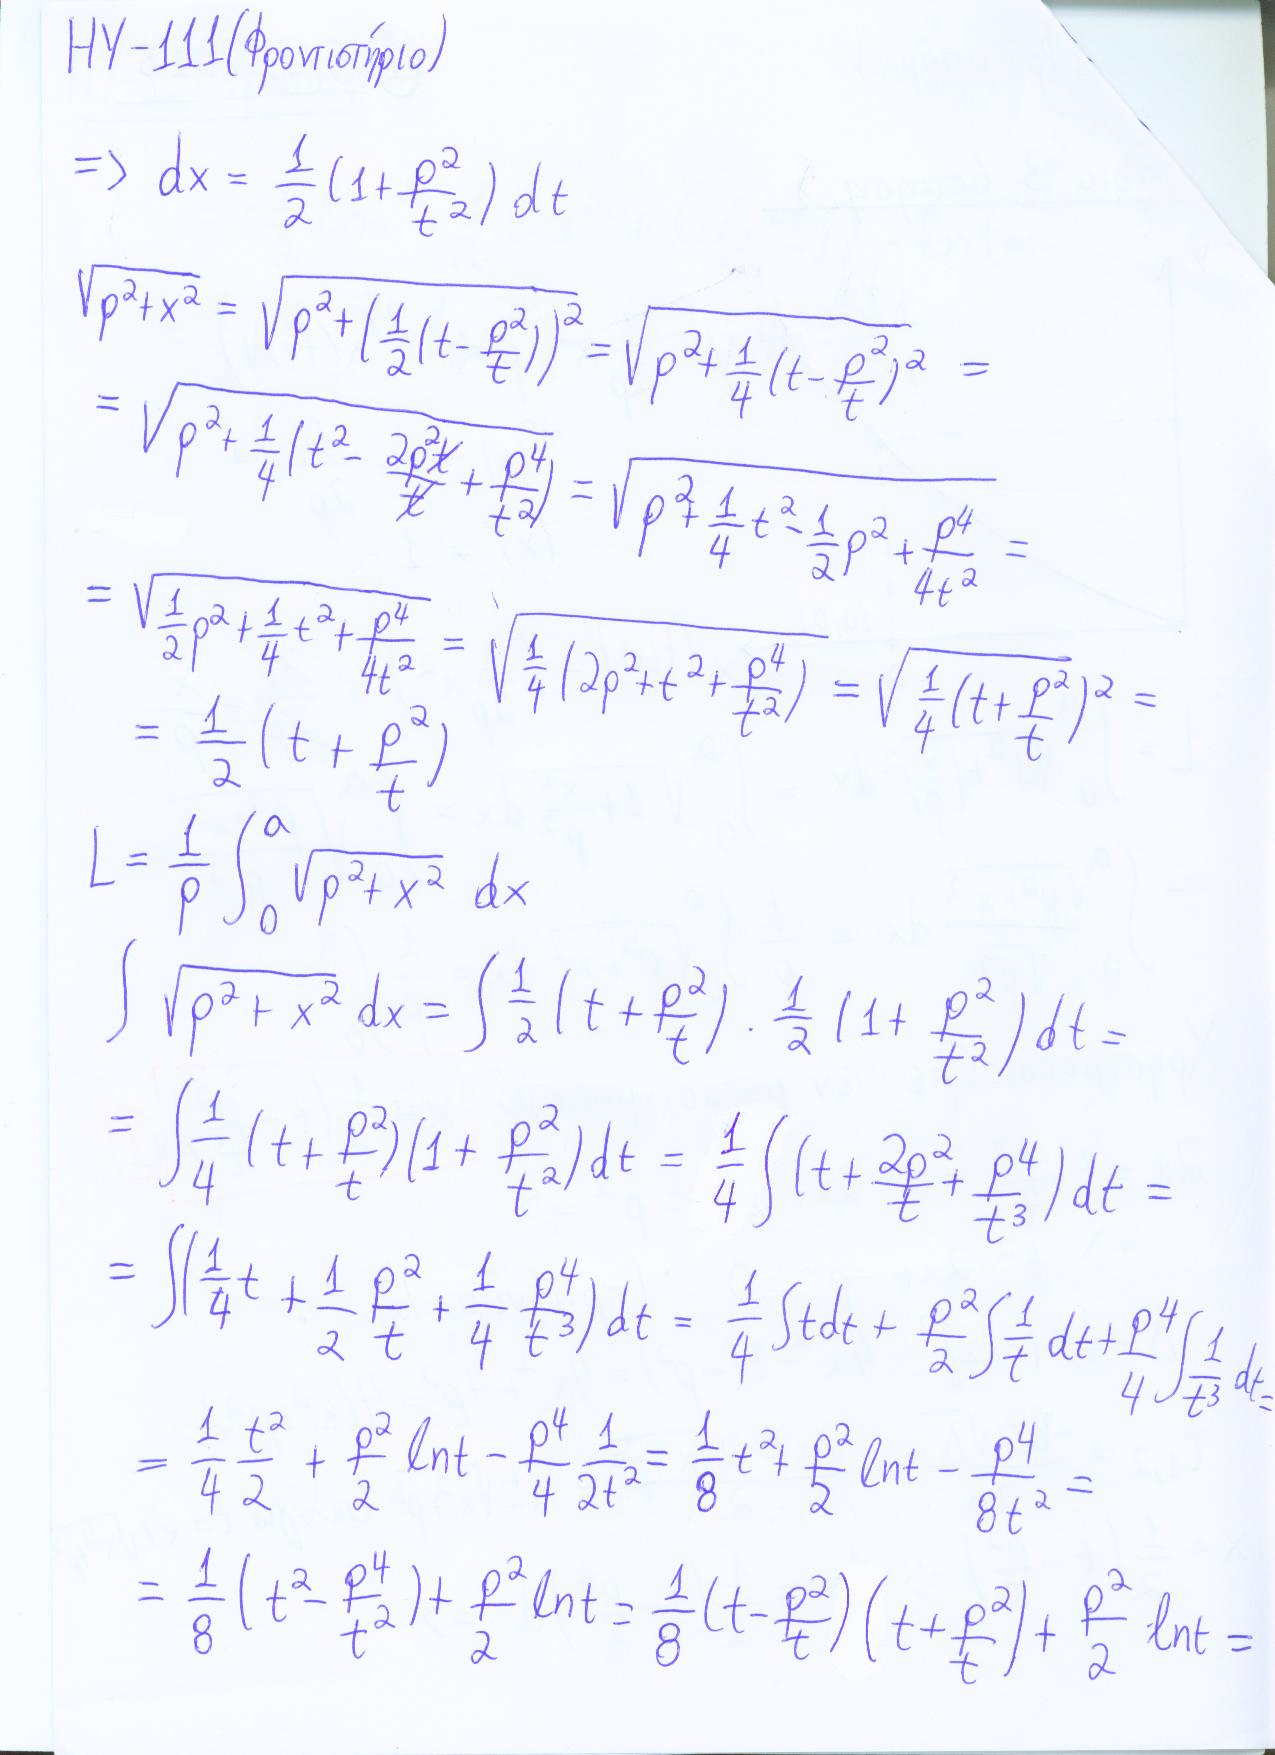 ΗΥ-111(Φροντιστήριο)
=> dx = 1/2 (1+p²/t²) dt
√(p²+x²) = √(p²+(1/2(t-p²/t))²) = √(p²+1/4(t-p²/t)²) =
= √(p²+1/4(t²-2p²t/t+p⁴/t²)) = √(p²+1/4t²-1/2p²+p⁴/4t²) =
= √(1/2p²+1/4t²+p⁴/4t²) = √(1/4(2p²+t²+p⁴/t²)) = √(1/4(t+p²/t)²) =
= 1/2(t+p²/t)
L = 1/p ∫₀ᵃ √(p²+x²) dx
∫ √(p²+x²) dx = ∫ 1/2(t+p²/t) · 1/2(1+p²/t²) dt =
= ∫ 1/4(t+p²/t)(1+p²/t²) dt = 1/4 ∫ (t+2p²/t+p⁴/t³) dt =
= ∫ (1/4 t + 1/2 p²/t + 1/4 p⁴/t³) dt = 1/4 ∫ t dt + p²/2 ∫ 1/t dt + p⁴/4 ∫ 1/t³ dt =
= 1/4 t²/2 + p²/2 lnt - p⁴/4 1/2t² = 1/8 t² + p²/2 lnt - p⁴/8t² =
= 1/8(t²-p⁴/t²) + p²/2 lnt = 1/8(t-p²/t)(t+p²/t) + p²/2 lnt =